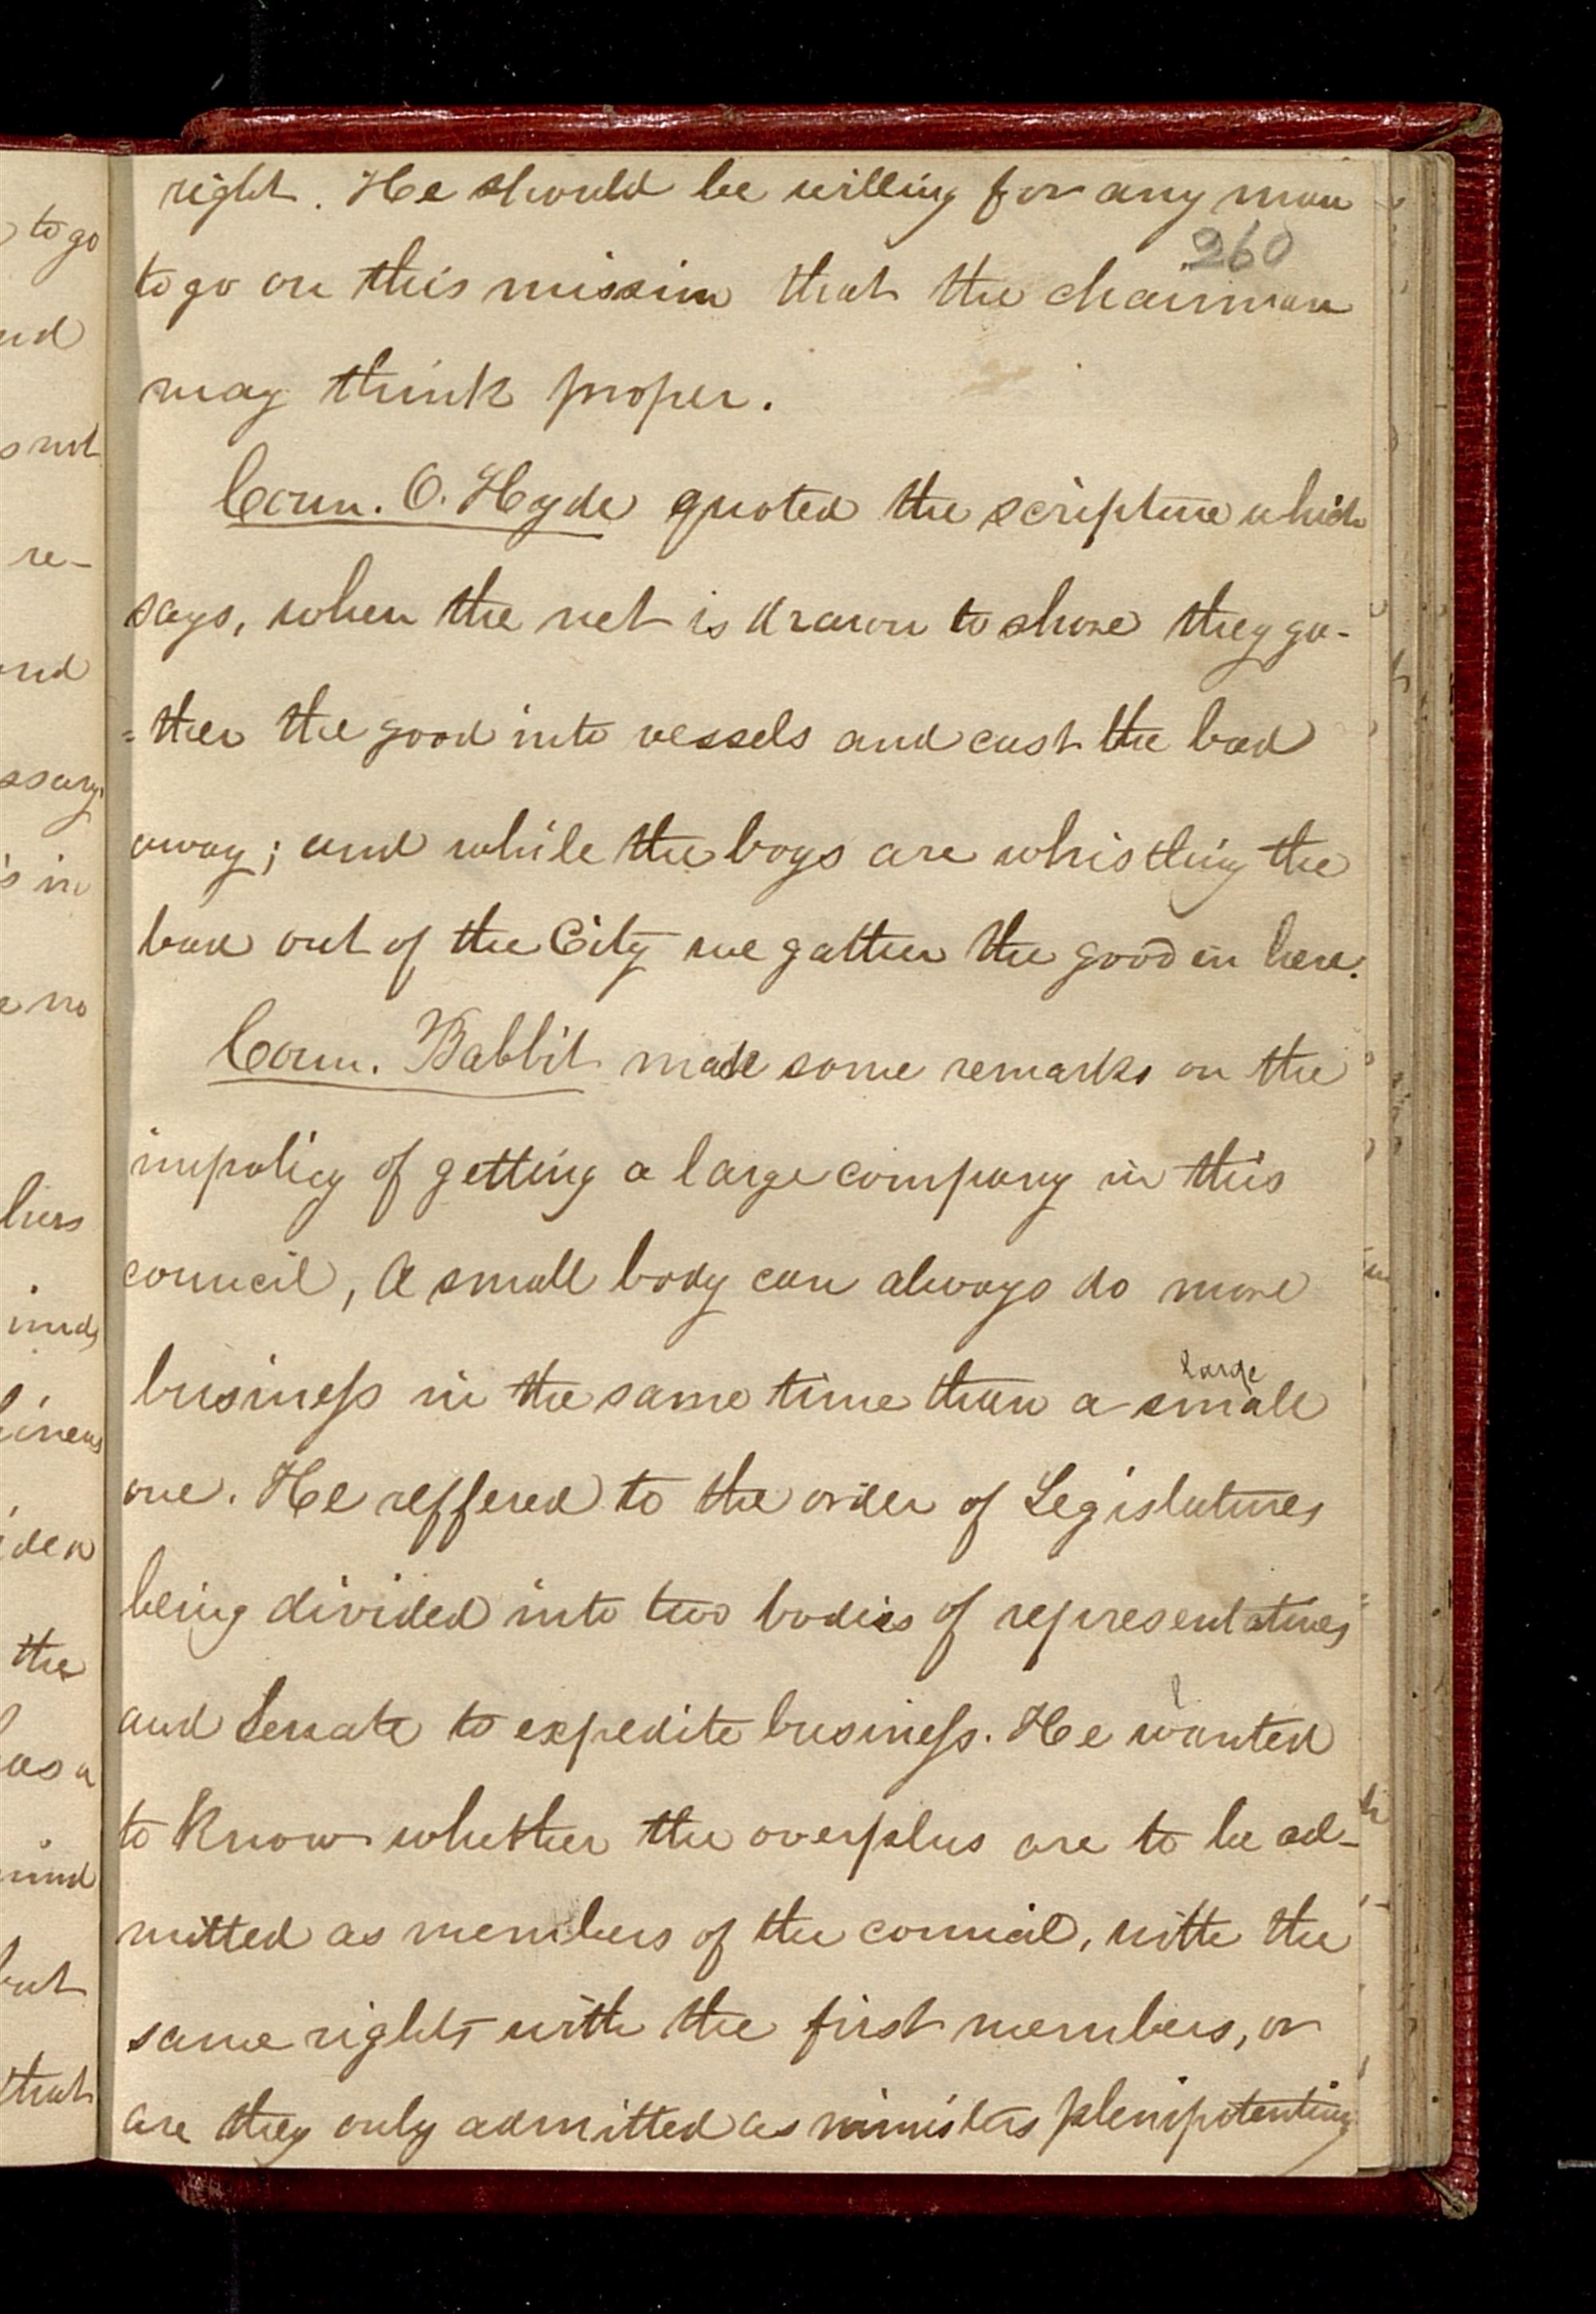 right. He should be willing for any man
260
to go on this mission that the chairman
may think proper.
Coun. O. Hyde quoted the scripture which
says, when the net is drawn to shore they ga-
=ther the good into vessels and cast the bad
away; and while the boys are whistling the
bad out of the City we gather the good in here.
Coun. Babbit made some remarks on the
impolicy of getting a large company in this
council, A small body can always do more
large
business in the same time than a small
one. He reffered to the order of Legislatures
being divided into two bodies of representatives
and Senate to expedite business. He wanted
to know whether the overplus are to be ad-
mitted as members of the council, with the
same rights with the first members, or
are they only admitted as ministers plenipotentiary
to go
nd
not
re-
and
ssary
is in
no
the
as a
mind
but
that